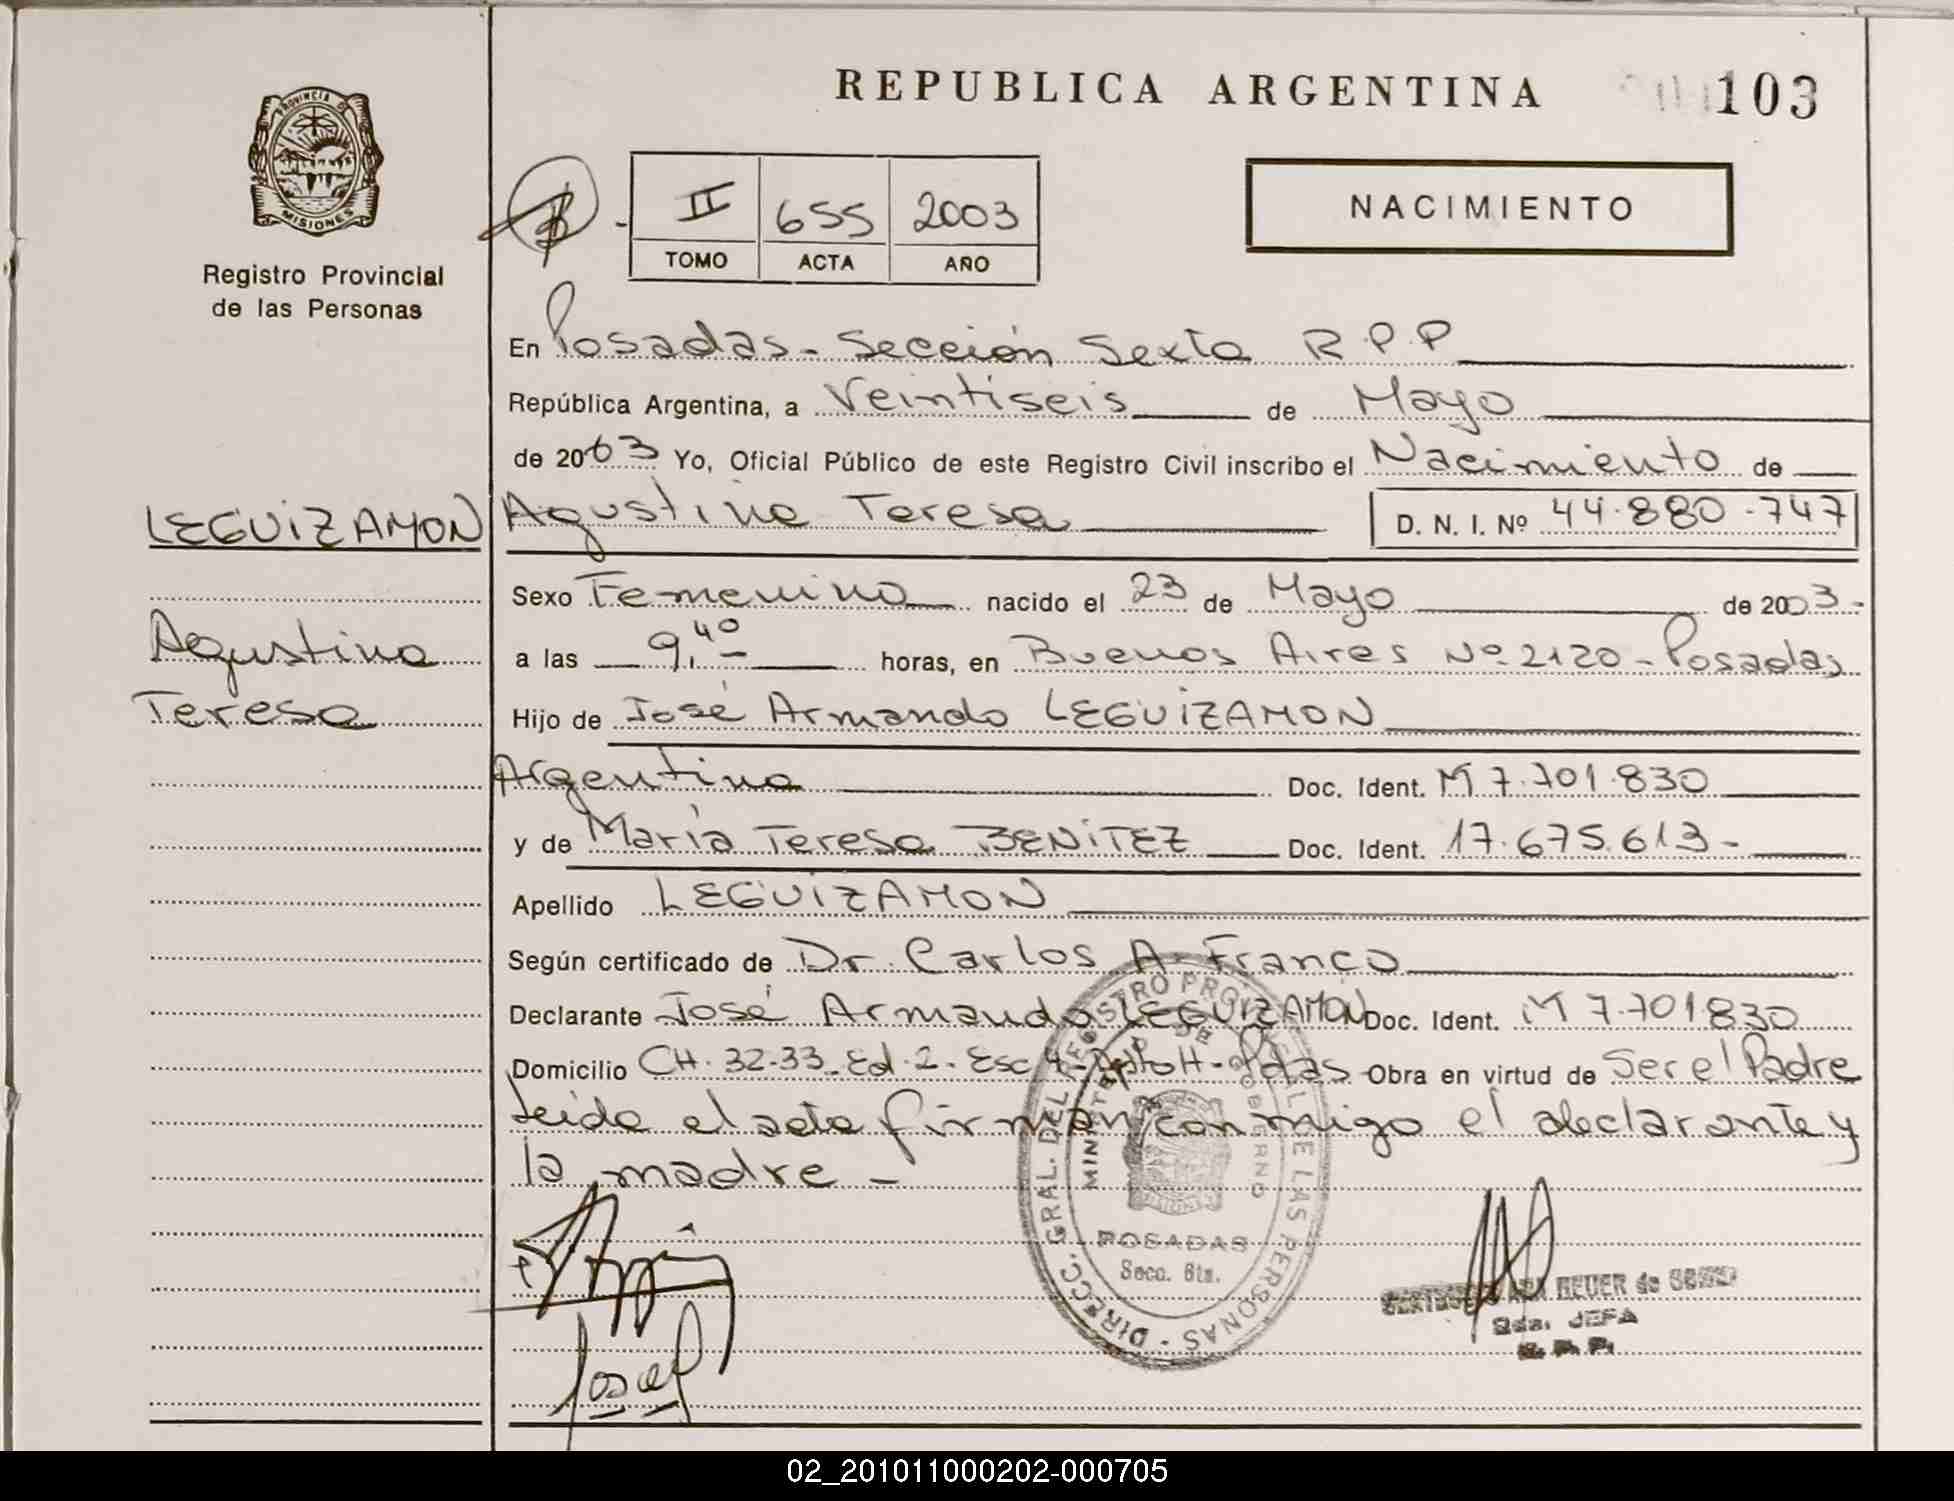 REPUBLICA ARGENTINA
103
PROVINCIA DE
MISIONES
Registro Provincial
de las Personas
II 655 2003
TOMO ACTA AÑO
NACIMIENTO
En Posadas - Sección Sexta R.P.P
República Argentina, a Veintiseis de Mayo
de 2003 Yo, Oficial Público de este Registro Civil inscribo el Nacimiento de
LEGUIZAMON Agustina Teresa D. N. I. Nº 44.880.747
Sexo Femenino nacido el 23 de Mayo de 2003-
Agustina a las 9,40 horas, en Buenos Aires Nº 2120 - Posadas
Teresa Hijo de José Armando LEGUIZAMON
Argentina Doc. Ident. M 7.701.830
y de María Teresa BENITEZ Doc. Ident. 17.675.613-
Apellido LEGUIZAMON
Según certificado de Dr. Carlos A. Franco
Declarante José Armando LEGUIZAMON Doc. Ident. M 7.701830
Domicilio CH. 32-33. Ed. 2. Esc 4- Dpto H- Pdas Obra en virtud de Ser el Padre
leida el acta firman conmigo el declarante y
la madre -
DIRECC. GRAL. DEL REGISTRO PROVINCIAL DE LAS PERSONAS
MINISTERIO DE GOBIERNO
POSADAS
Secc. 6ta.
REUER de
JEFA
R. P. P.
02_201011000202-000705